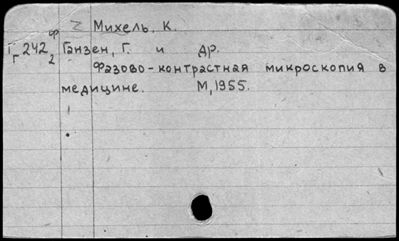 Михель, К.
Г 242 Ф 2 Ганзен, Г. и др.
Фазово-контрастная микроскопия в
медицине. М, 1955.